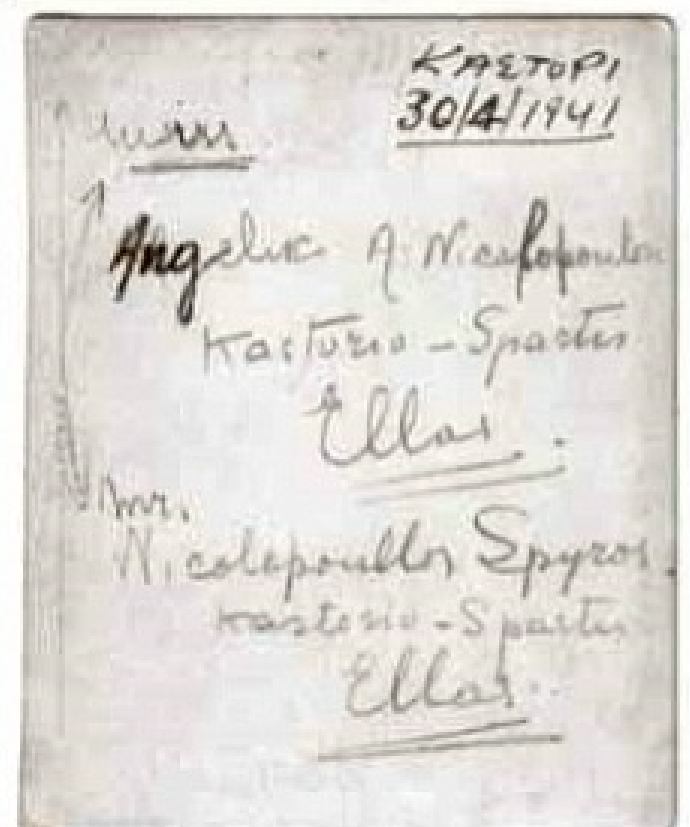 ΚΑΣΤΟΡΙ
30/4/1941
Angelic A. Nicolopoulou
Kastorio - Spartis
Ellas.
Mr.
Nicolopoullos Spyros.
Kastorio - Spartis
Ellas.